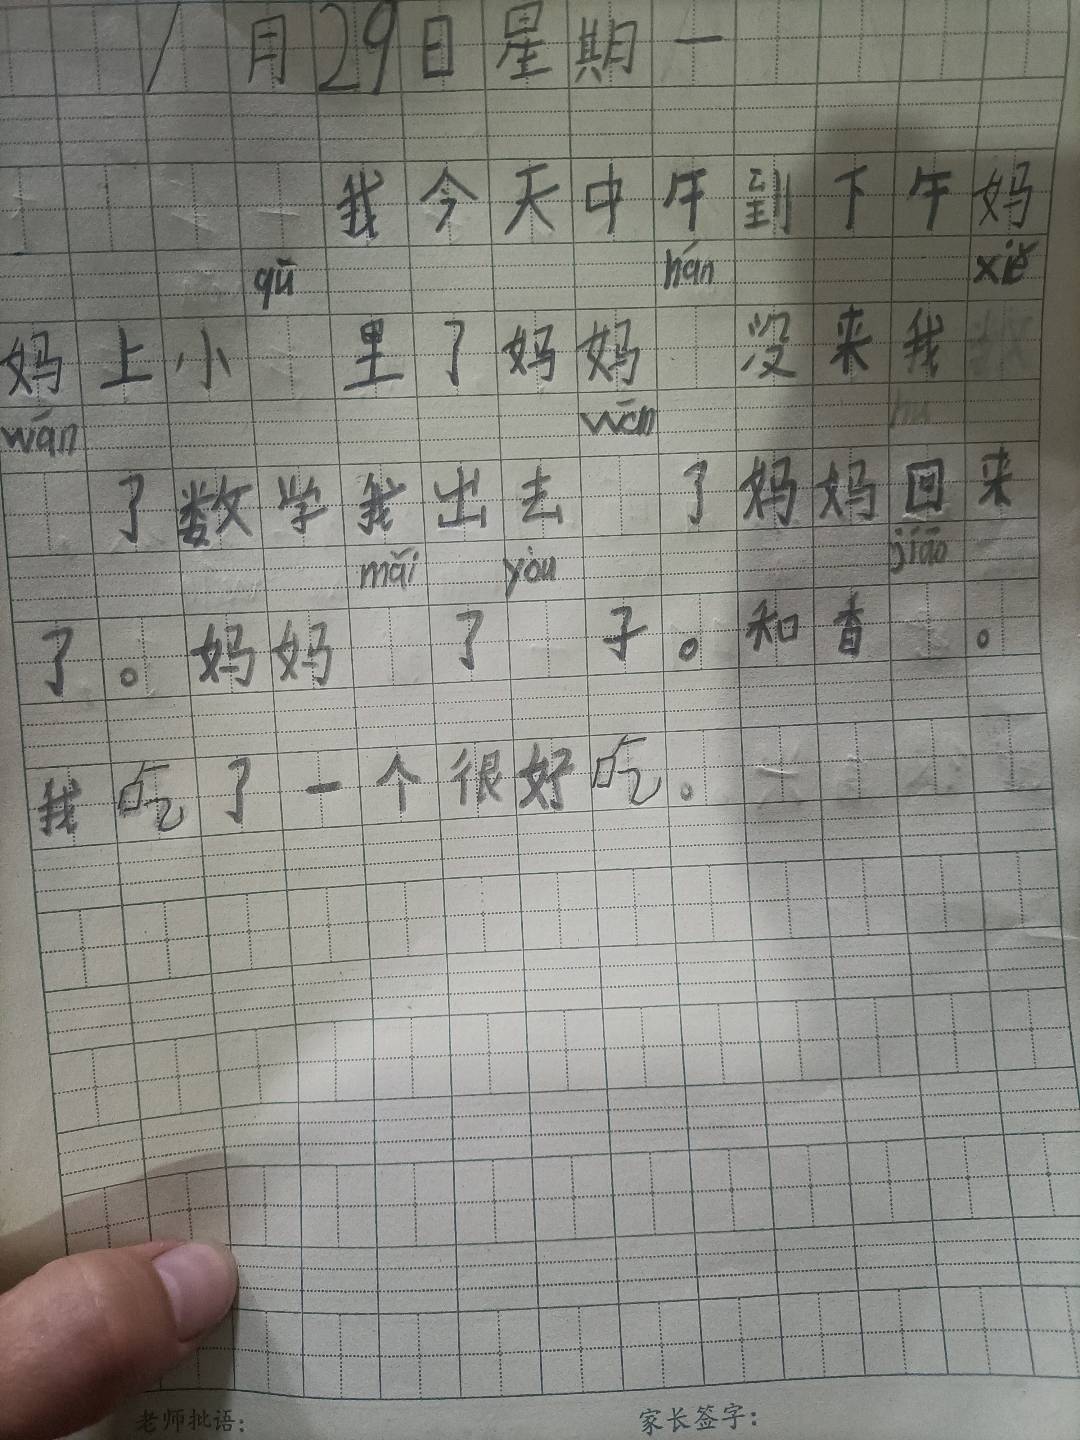 1月29日星期一
我今天中午到下午妈
qū hán xiě
妈上小 里了妈妈 没来我
wán wán
了数学我出去 了妈妈回来
mǎi yòu jiāo
了。妈妈 了 子。和香 。
我吃了一个很好吃。
老师批语: 家长签字: